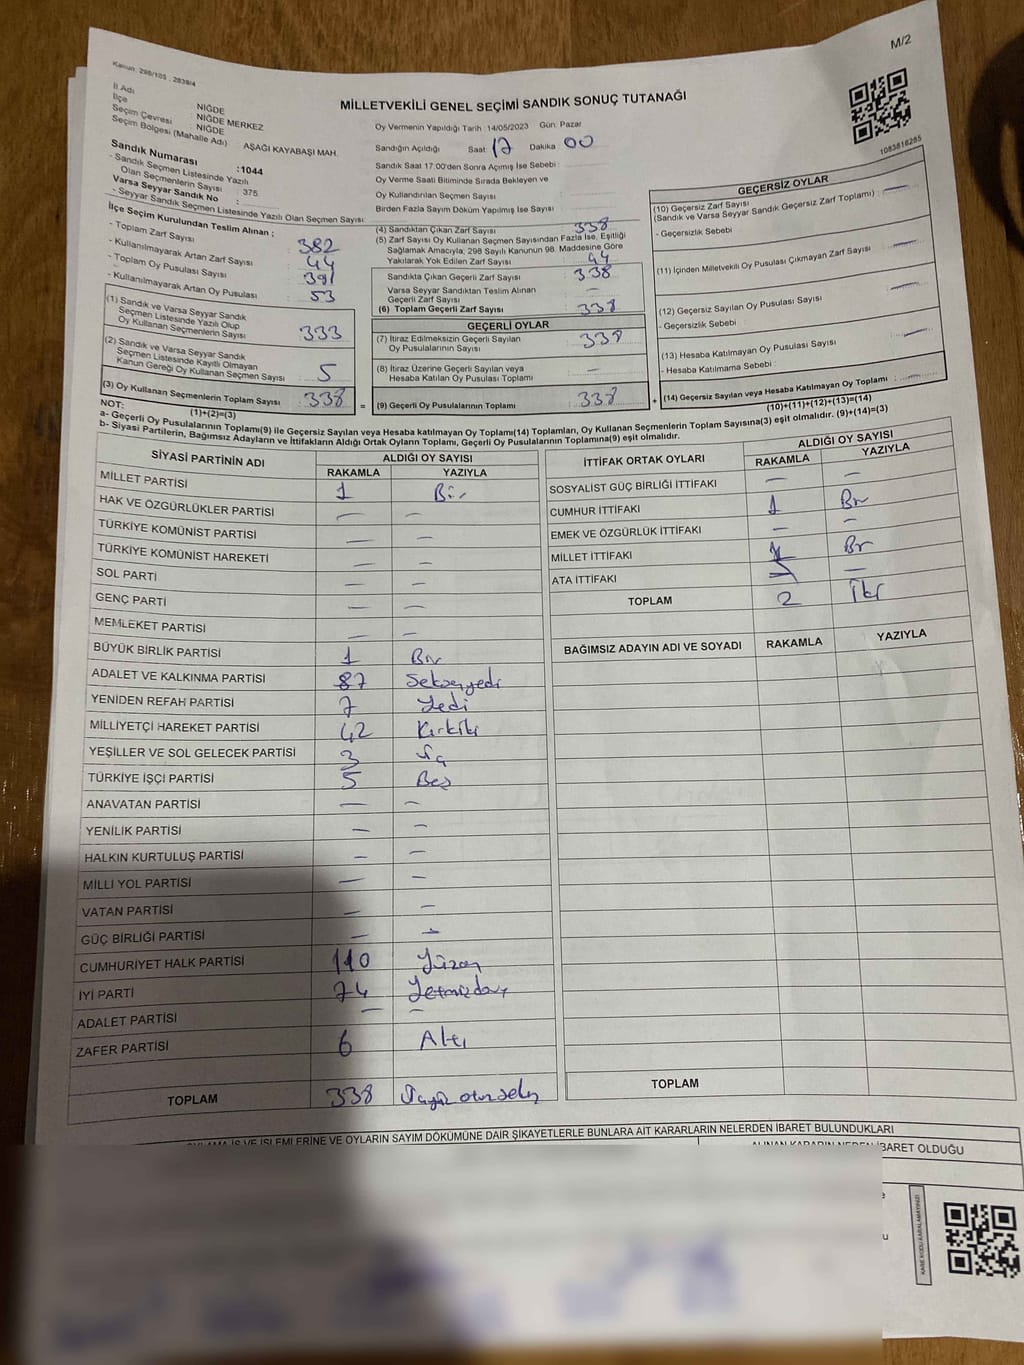 M/2
Kanun: 298/105 , 2839/4
MİLLETVEKİLİ GENEL SEÇİMİ SANDIK SONUÇ TUTANAĞI
İl Adı NİĞDE
İlçe NİĞDE MERKEZ
Seçim Çevresi NİĞDE
Seçim Bölgesi (Mahalle Adı) AŞAĞI KAYABAŞI MAH.
Sandık Numarası :1044
- Sandık Seçmen Listesinde Yazılı
Olan Seçmenlerin Sayısı : 375
Varsa Seyyar Sandık No :
- Seyyar Sandık Seçmen Listesinde Yazılı Olan Seçmen Sayısı :
İlçe Seçim Kurulundan Teslim Alınan ;
- Toplam Zarf Sayısı : 382
- Kullanılmayarak Artan Zarf Sayısı : 44
- Toplam Oy Pusulası Sayısı : 391
- Kullanılmayarak Artan Oy Pusulası : 53
(1) Sandık ve Varsa Seyyar Sandık
Seçmen Listesinde Yazılı Olup
Oy Kullanan Seçmenlerin Sayısı : 333
(2) Sandık ve Varsa Seyyar Sandık
Seçmen Listesinde Kayıtlı Olmayan
Kanun Gereği Oy Kullanan Seçmen Sayısı : 5
(3) Oy Kullanan Seçmenlerin Toplam Sayısı : 338
(1)+(2)=(3)
Oy Vermenin Yapıldığı Tarih :14/05/2023 Gün: Pazar
Sandığın Açıldığı Saat : 17 Dakika : 00
Sandık Saat 17:00'den Sonra Açımış İse Sebebi :
Oy Verme Saati Bitiminde Sırada Bekleyen ve
Oy Kullandırılan Seçmen Sayısı :
Birden Fazla Sayım Döküm Yapılmış İse Sayısı :
(4) Sandıktan Çıkan Zarf Sayısı : 338
(5) Zarf Sayısı Oy Kullanan Seçmen Sayısından Fazla İse, Eşitliği
Sağlamak Amacıyla, 298 Sayılı Kanunun 98. Maddesine Göre
Yakılarak Yok Edilen Zarf Sayısı : 44
Sandıkta Çıkan Geçerli Zarf Sayısı : 338
Varsa Seyyar Sandıktan Teslim Alınan
Geçerli Zarf Sayısı : —
(6) Toplam Geçerli Zarf Sayısı : 338
GEÇERLİ OYLAR
(7) İtiraz Edilmeksizin Geçerli Sayılan
Oy Pusulalarının Sayısı : 338
(8) İtiraz Üzerine Geçerli Sayılan veya
Hesaba Katılan Oy Pusulası Toplamı : —
= (9) Geçerli Oy Pusulalarının Toplamı : 338 +
1083816285
GEÇERSİZ OYLAR
(10) Geçersiz Zarf Sayısı
(Sandık ve Varsa Seyyar Sandık Geçersiz Zarf Toplamı) : —
- Geçersizlik Sebebi :
(11) İçinden Milletvekili Oy Pusulası Çıkmayan Zarf Sayısı : —
(12) Geçersiz Sayılan Oy Pusulası Sayısı : —
- Geçersizlik Sebebi :
(13) Hesaba Katılmayan Oy Pusulası Sayısı : —
- Hesaba Katılmama Sebebi :
(14) Geçersiz Sayılan veya Hesaba Katılmayan Oy Toplamı : —
(10)+(11)+(12)+(13)=(14)
NOT:
a- Geçerli Oy Pusulalarının Toplamı(9) ile Geçersiz Sayılan veya Hesaba katılmayan Oy Toplamı(14) Toplamları, Oy Kullanan Seçmenlerin Toplam Sayısına(3) eşit olmalıdır. (9)+(14)=(3)
b- Siyasi Partilerin, Bağımsız Adayların ve İttifakların Aldığı Ortak Oyların Toplamı, Geçerli Oy Pusulalarının Toplamına(9) eşit olmalıdır.
SİYASİ PARTİNİN ADI ALDIĞI OY SAYISI
RAKAMLA YAZIYLA
MİLLET PARTİSİ 1 Bir
HAK VE ÖZGÜRLÜKLER PARTİSİ — —
TÜRKİYE KOMÜNİST PARTİSİ — —
TÜRKİYE KOMÜNİST HAREKETİ — —
SOL PARTİ — —
GENÇ PARTİ — —
MEMLEKET PARTİSİ — —
BÜYÜK BİRLİK PARTİSİ 1 Bir
ADALET VE KALKINMA PARTİSİ 87 Seksenyedi
YENİDEN REFAH PARTİSİ 7 Yedi
MİLLİYETÇİ HAREKET PARTİSİ 42 Kırkiki
YEŞİLLER VE SOL GELECEK PARTİSİ 3 Üç
TÜRKİYE İŞÇİ PARTİSİ 5 Beş
ANAVATAN PARTİSİ — —
YENİLİK PARTİSİ — —
HALKIN KURTULUŞ PARTİSİ — —
MİLLİ YOL PARTİSİ — —
VATAN PARTİSİ — —
GÜÇ BİRLİĞİ PARTİSİ — —
CUMHURİYET HALK PARTİSİ 110 Yüzon
İYİ PARTİ 74 Yetmişdört
ADALET PARTİSİ — —
ZAFER PARTİSİ 6 Altı
TOPLAM 338 Üçyüz otuzsekiz
İTTİFAK ORTAK OYLARI ALDIĞI OY SAYISI
RAKAMLA YAZIYLA
SOSYALİST GÜÇ BİRLİĞİ İTTİFAKI — —
CUMHUR İTTİFAKI 1 Bir
EMEK VE ÖZGÜRLÜK İTTİFAKI — —
MİLLET İTTİFAKI 1 Bir
ATA İTTİFAKI —
TOPLAM 2 İki
BAĞIMSIZ ADAYIN ADI VE SOYADI RAKAMLA YAZIYLA
TOPLAM
İŞLEMLERİNE VE OYLARIN SAYIM DÖKÜMÜNE DAİR ŞİKAYETLERLE BUNLARA AİT KARARLARIN NELERDEN İBARET BULUNDUKLARI
ALINAN KARARIN NEDEN İBARET OLDUĞU